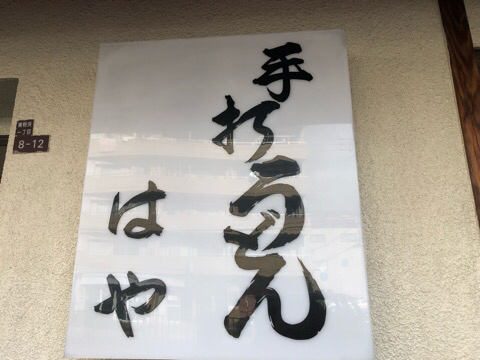 手打うどん
はや
一丁目
8-12